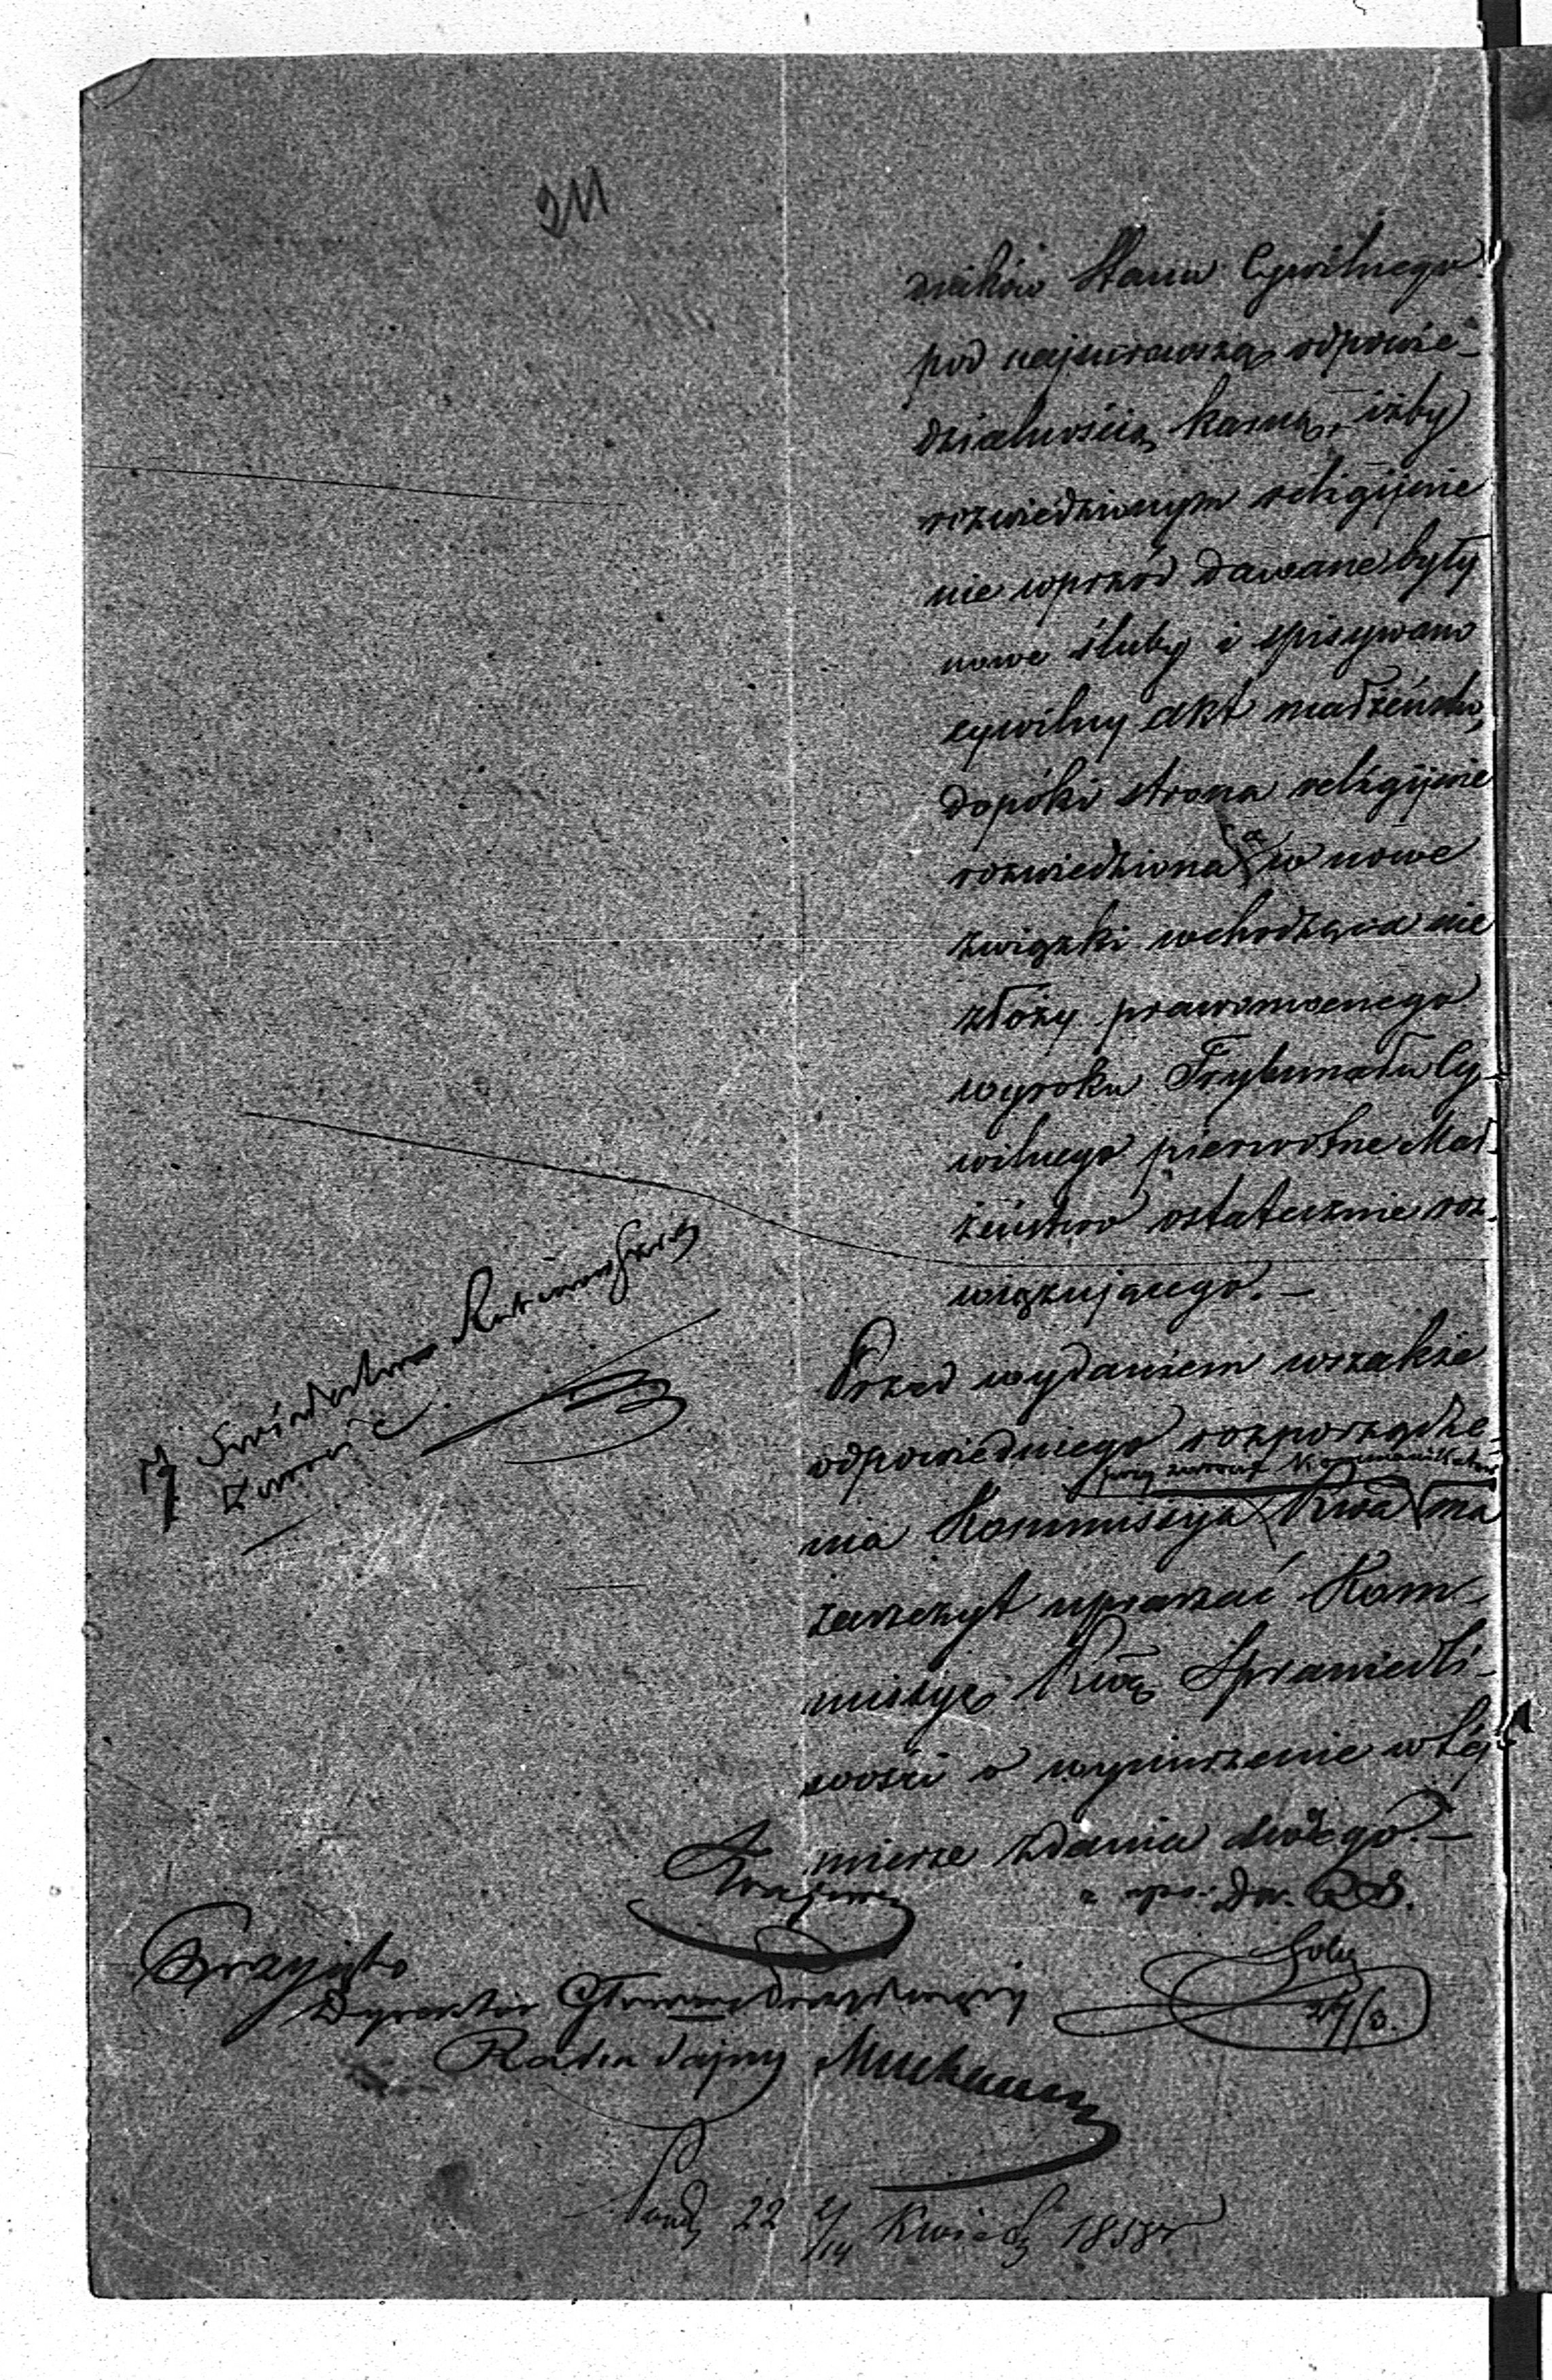 211
dników Stanu Cywilnego
pod najsurowszą odpowie-
dzialnością karną, iżby
rozwiedzionym religijnie
nie wprzód dawane były
nowe śluby i spisywano
cywilny akt małżeństwa,
dopóki strona religijnie
rozwiedziona a w nowe
związki wchodząca nie
złoży prawomocnego
wyroku Trybunału Cy-
wilnego pierwotne Mał-
żeństwo ostatecznie roz-
wiązującego.—
Przed wydaniem wszakże
odpowiedniego rozporządze-
przy zwrocie
nia Kommissya Rwa ma
zaszczyt upraszać Kom-
missyę Rwą Sprawiedli-
wości o wynurzenie w téj
mierze zdania swego.—
Przyjęto
Dyrektor Główny Prezydujący
Radca Tajny Muchanow
27/3.
22 2/14 Kwiet 1858 r